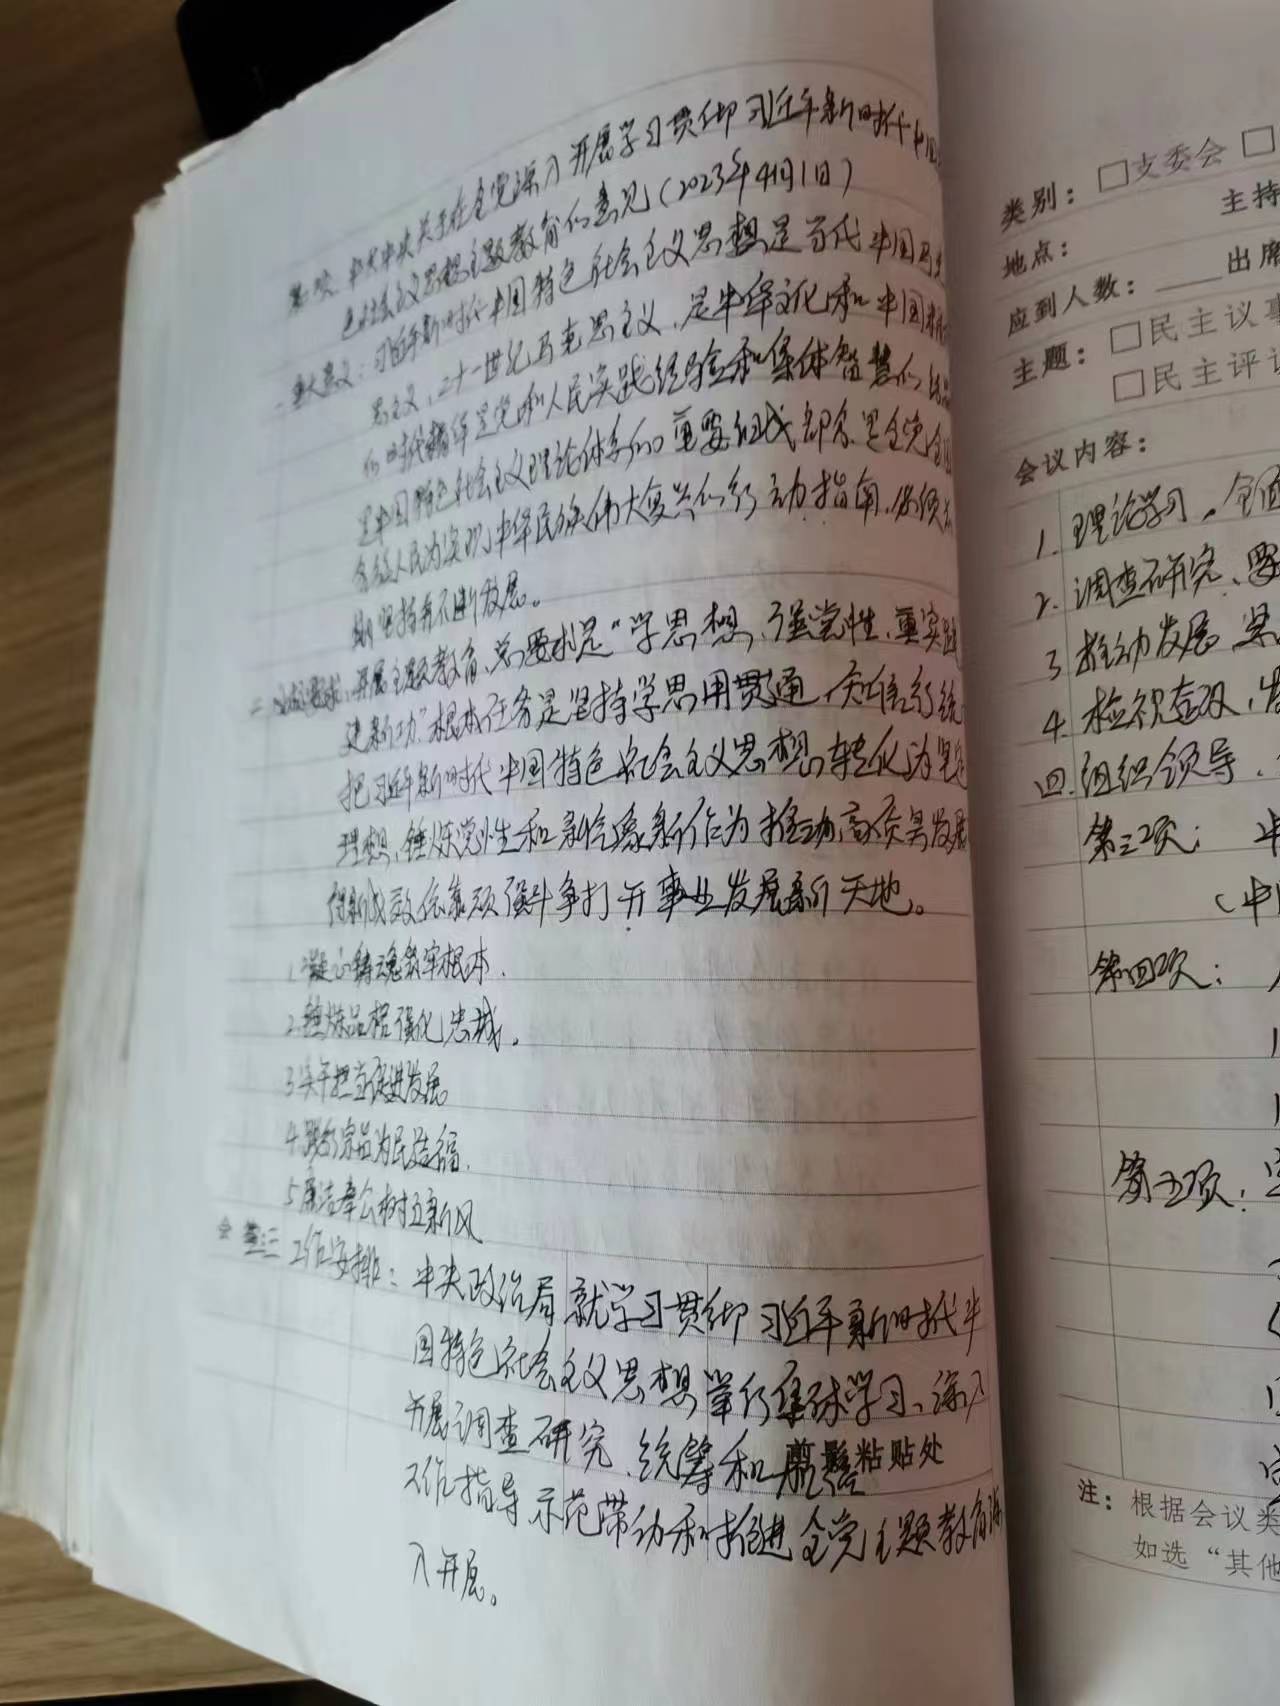 第二项、中共中央关于在全党深入开展学习贯彻习近平新时代中国
色社会主义思想主题教育的意见(2023年4月1日)
一、重大意义:习近平新时代中国特色社会主义思想是当代中国马克
思主义、二十一世纪马克思主义,是中华文化和中国精神
的时代精华是党和人民实践经验和集体智慧的结晶
是中国特色社会主义理论体系的重要组成部分是全党全国
各族人民为实现中华民族伟大复兴的行动指南,必须长
期坚持并不断发展。
二、要求:开展主题教育,总要求是“学思想,强党性,重实践
建新功”根本任务是坚持学思用贯通,知信行统
把习近平新时代中国特色社会主义思想转化为坚定
理想、锤炼党性和新气象新作为推动高质量发展
得新成效依靠顽强斗争打开事业发展新天地。
1.凝心铸魂筑牢根本.
2.锤炼品格强化忠诚。
3.实干担当促进发展。
4.践行宗旨为民造福.
5.廉洁奉公树立新风
会
三 工作安排:中央政治局就学习贯彻习近平新时代中
国特色社会主义思想举行集体学习、深入
开展调查研究,统筹和
剪影粘贴处
工作指导示范带动和推进全党主题教育深
入开展。
类别:□支委会 □
主持
地点:
应到人数: 出席
主题:□民主议事
□民主评议
会议内容:
1.理论学习,全面
2.调查研究、要
3.推动发展
4.检视整改,
四.组织领导.
第三项:中
(中
第四项:
第五项:
注:根据会议类
如选“其他